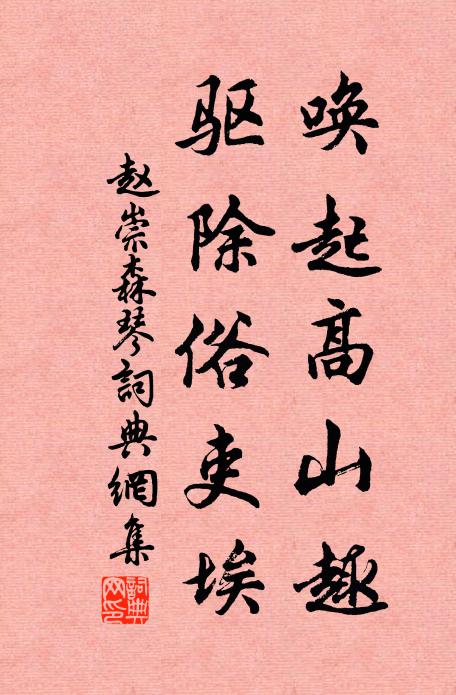 唤起高山趣
驱除俗吏埃
赵崇森琴詞典網集
詞典网印